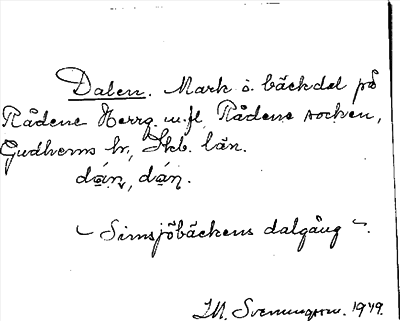 Dalen. Mark o. bäckdal på
Rådene Herrg. m. fl. Rådene socken,
Gudhems hr, Skb. län.
dán, dán.
~ Simsjöbäckens dalgång ~.
I.M. Svenungsson. 1949.